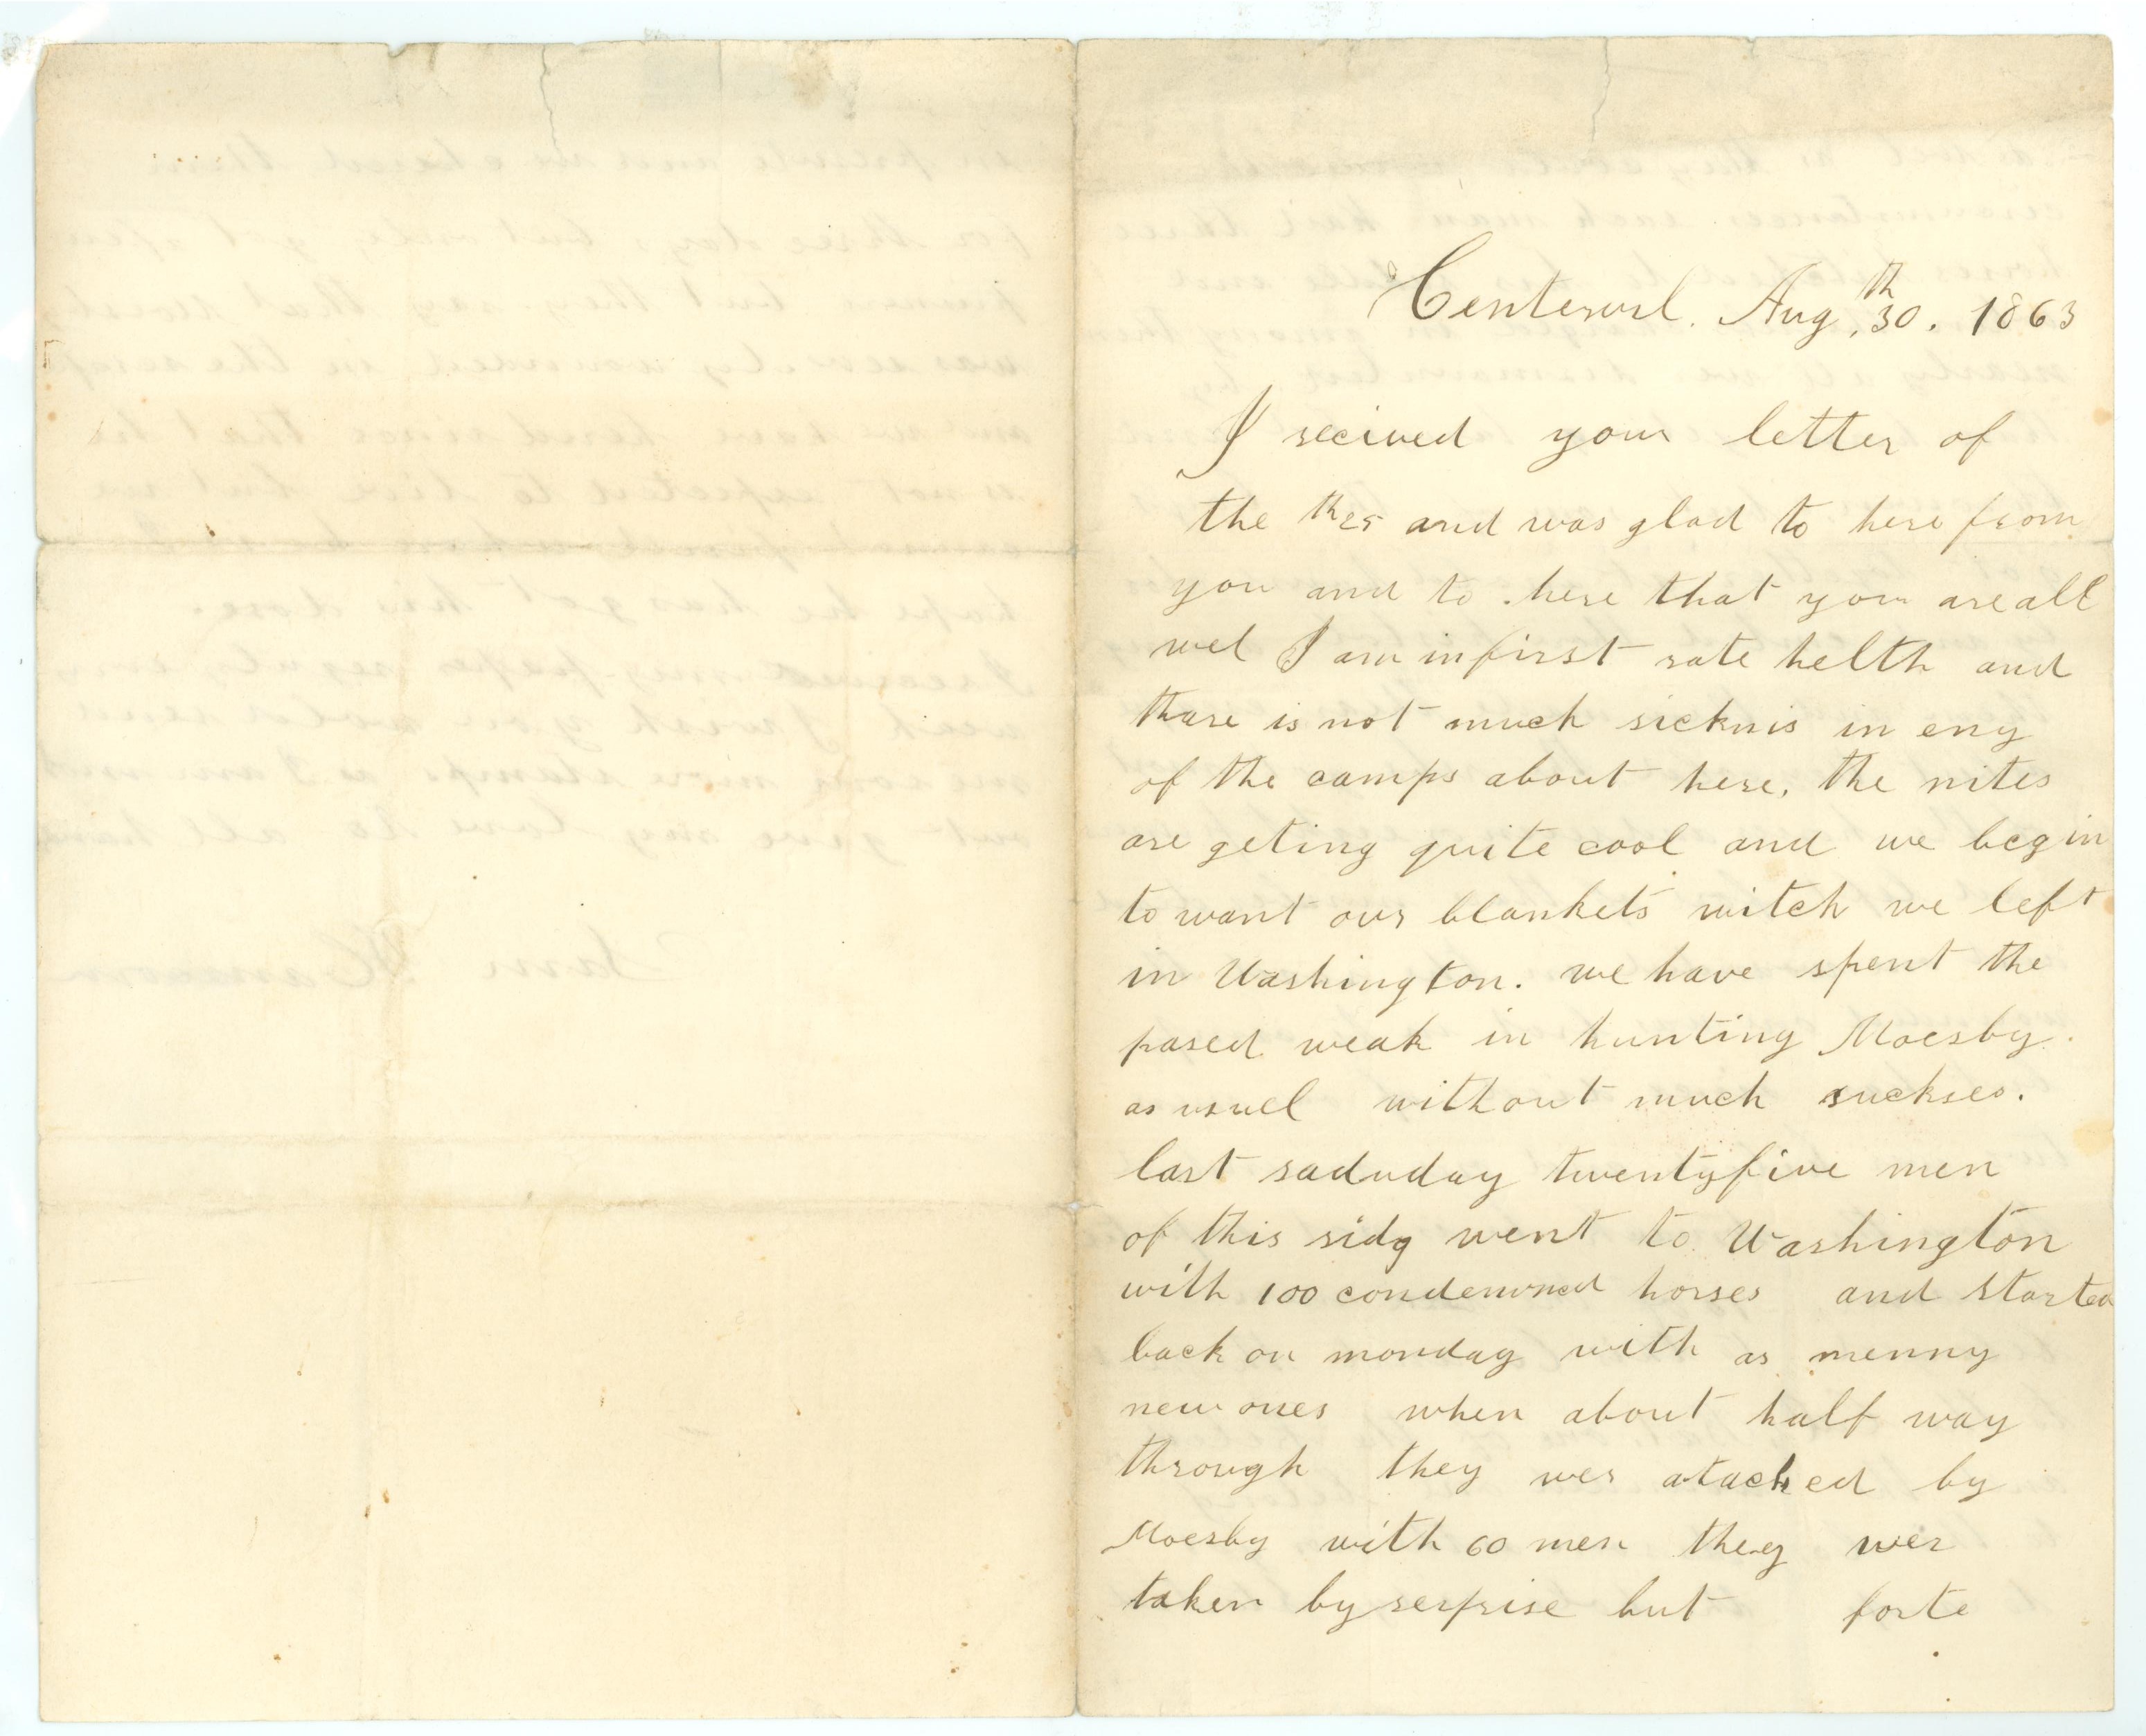 Centervil. Aug, 30th. 1863
I recived your letter of
the th25 and was glad to here from
you and to here that you are all
wel I am in first rate helth and
thare is not much sicknis in eny
of the camps about here, the nites
are geting quite cool and we begin
to want our blankets witch we left
in Washington. we have spent the
pased weak in hunting Moesby.
as usuel without much suckses.
last saduday twentyfive men
of this ridg went to Washington
with 100 condemned horses and started
back on monday with as menny
new ones when about half way
through they wer atacked by
Moesby with 60 men they wer
taken by serprise but forte